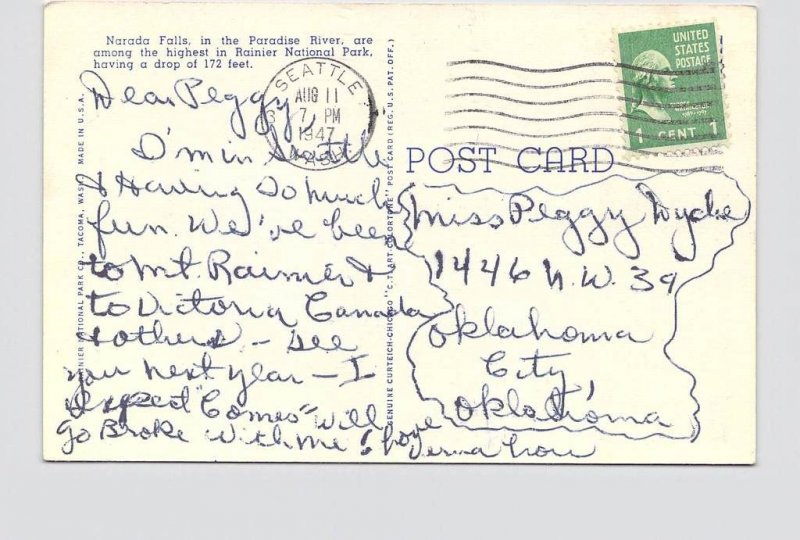 Narada Falls, in the Paradise River, are
among the highest in Rainier National Park,
having a drop of 172 feet.
SEATTLE
AUG 11
7 PM
1947
WASH.
UNITED
STATES
POSTAGE
1 CENT 1
Dear Peggy,
I'm in Seattle
& Having So much
fun. We've been
to Mt. Rainier &
to Victoria Canada
& others - see
you next year - I
expect "Comes" will
go Broke with me! Love
Verna Lou
POST CARD
Miss Peggy Dyche
1446 N.W. 39
Oklahoma
City
Oklahoma
RAINIER NATIONAL PARK CO., TACOMA, WASH. MADE IN U.S.A.
GENUINE CURTEICH-CHICAGO "C.T. ART-COLORTONE" POST CARD (REG. U.S. PAT. OFF.)